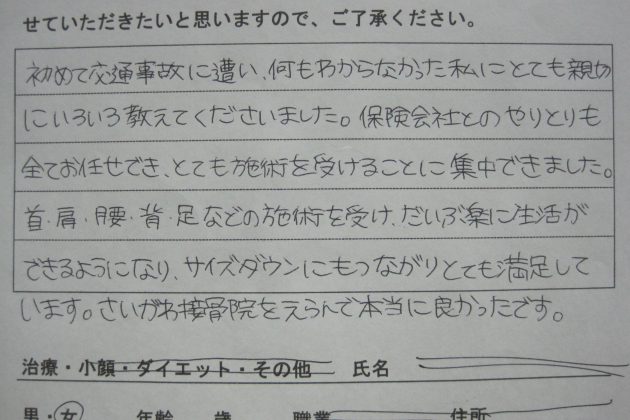 せていただきたいと思いますので、ご了承ください。
初めて交通事故に遭い、何もわからなかった私にとても親切
にいろいろ教えてくださいました。保険会社とのやりとりも
全てお任せでき、とても施術を受けることに集中できました。
首・肩・腰・背・足などの施術を受け、だいぶ楽に生活が
できるようになり、サイズダウンにもつながりとても満足して
います。さいがわ接骨院をえらんで本当に良かったです。
治療・小顔・ダイエット・その他 氏名
男・女 年齢 歳 職業 住所